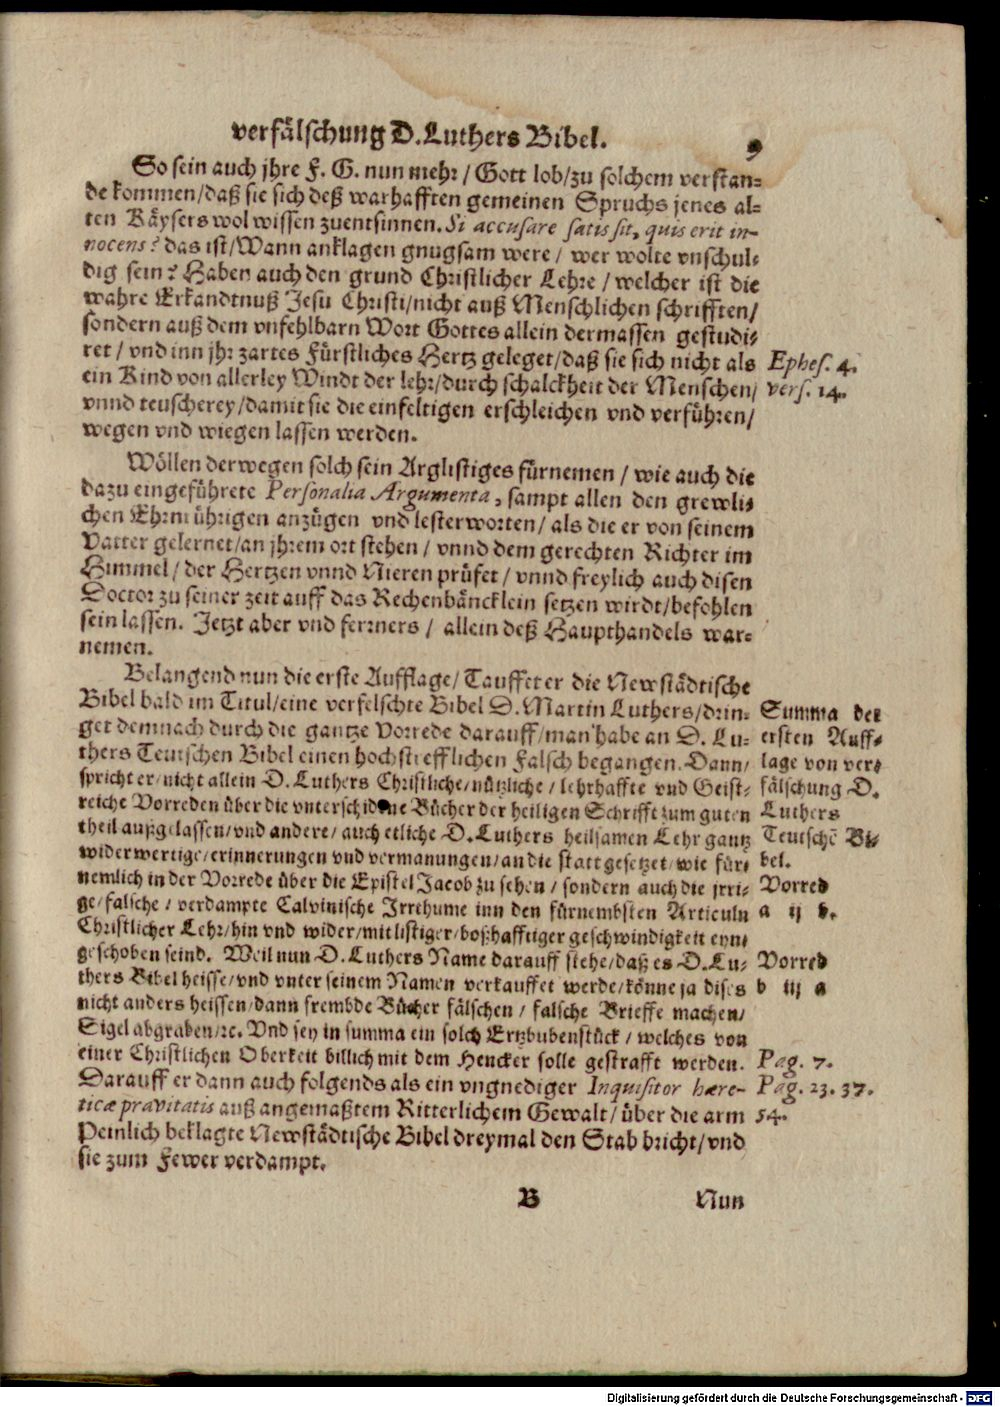 verfälschung D. Luthers Bibel. 9
So sein auch jhre F. G. nun mehr / Gott lob / zu solchem verstan-
de kommen / daß sie sich deß warhafften gemeinen Spruchs jenes al-
ten Käysers wol wissen zuentsinnen. Si accusare satis sit, quis erit in-
nocens? das ist / Wann anklagen gnugsam were / wer wolte vnschul-
dig sein? Haben auch den grund Christlicher Lehre / welcher ist die
wahre Erkandtnuß Jesu Christi / nicht auß Menschlichen schrifften /
sondern auß dem vnfehlbarn Wort Gottes allein dermassen gestudi-
ret / vnd inn jhr zartes Fürstliches Hertz geleget / daß sie sich nicht als
ein Kind von allerley Windt der lehr / durch schalckheit der Menschen /
vnnd teuscherey / damit sie die einfeltigen erschleichen vnd verführen /
wegen vnd wiegen lassen werden.
Ephes. 4.
vers. 14.
Wöllen derwegen solch sein Arglistiges fürnemen / wie auch die
dazu eingeführete Personalia Argumenta, sampt allen den grewli-
chen Ehrnrührigen anzügen vnd lesterworten / als die er von seinem
Vatter gelernet / an jhrem ort stehen / vnnd dem gerechten Richter im
Himmel / der Hertzen vnnd Nieren prüfet / vnnd freylich auch disen
Doctor zu seiner zeit auff das Rechenbäncklein setzen wirdt / befohlen
sein lassen. Jetzt aber vnd ferrners / allein deß Haupthandels war-
nemen.
Belangend nun die erste Aufflage / Tauffet er die Newstädtische
Bibel bald im Titul / eine verfelschte Bibel D. Martin Luthers / drin-
get demnach durch die gantze Vorrede darauff / man habe an D. Lu-
thers Teutschen Bibel einen hochstrefflichen Falsch begangen. Dann /
spricht er / nicht allein D. Luthers Christliche / nützliche / lehrhaffte vnd Geist-
reiche Vorreden über die vnterschidene Bücher der heiligen Schrifft zum guten
theil außgelassen / vnd andere / auch etliche D. Luthers heilsamen Lehr gantz
widerwertige / erinnerungen vnd vermanungen / an die statt gesetzet / wie für-
nemlich in der Vorrede über die Epistel Jacob zu sehen / sondern auch die jrri-
ge / falsche / verdampte Calvinische Irrthume inn den fürnembsten Articuln
Christlicher Lehr / hin vnd wider / mit listiger / boßhafftiger geschwindigkeit eyn-
geschoben seind. Weil nun D. Luthers Name darauff stehe / daß es D. Lu-
thers Bibel heisse / vnd vnter seinem Namen verkauffet werde / könne ja dises
nicht anders heissen / dann frembde Bücher fälschen / falsche Brieffe machen /
Sigel abgraben / ꝛc. Vnd sey in summa ein solch Ertzbubenstück / welches von
einer Christlichen Oberkeit billich mit dem Hencker solle gestrafft werden.
Darauff er dann auch folgends als ein vngnediger Inquisitor hære-
ticæ pravitatis auß angemaßtem Ritterlichem Gewalt / über die arm
Peinlich beklagte Newstädtische Bibel dreymal den Stab bricht / vnd
sie zum Fewer verdampt.
Summa der
ersten Auff-
lage von ver-
fälschung D.
Luthers
Teutschē Bi-
bel.
Vorred
a ij b.
Vorred
b iij a
Pag. 7.
Pag. 23. 37.
54.
B Nun
Digitalisierung gefördert durch die Deutsche Forschungsgemeinschaft - DFG